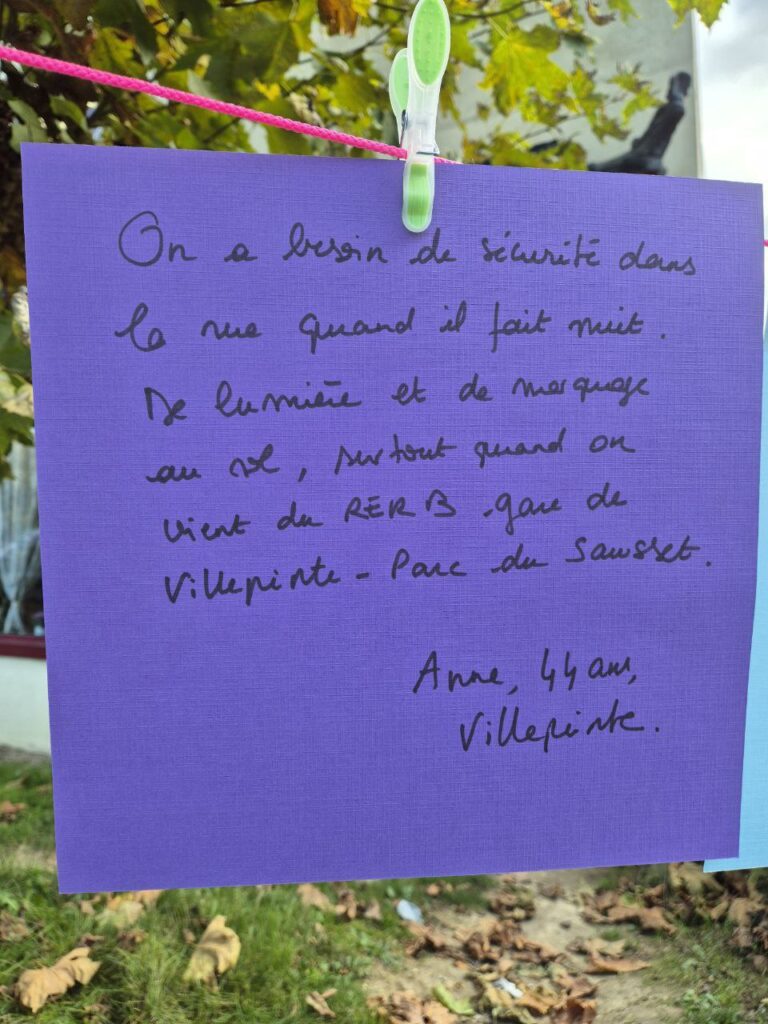 On a besoin de sécurité dans
la rue quand il fait nuit.
De lumière et de marquage
au sol, surtout quand on
vient du RER B. gare de
Villepinte - Parc du Sausset.
Anne, 44 ans,
Villepinte.